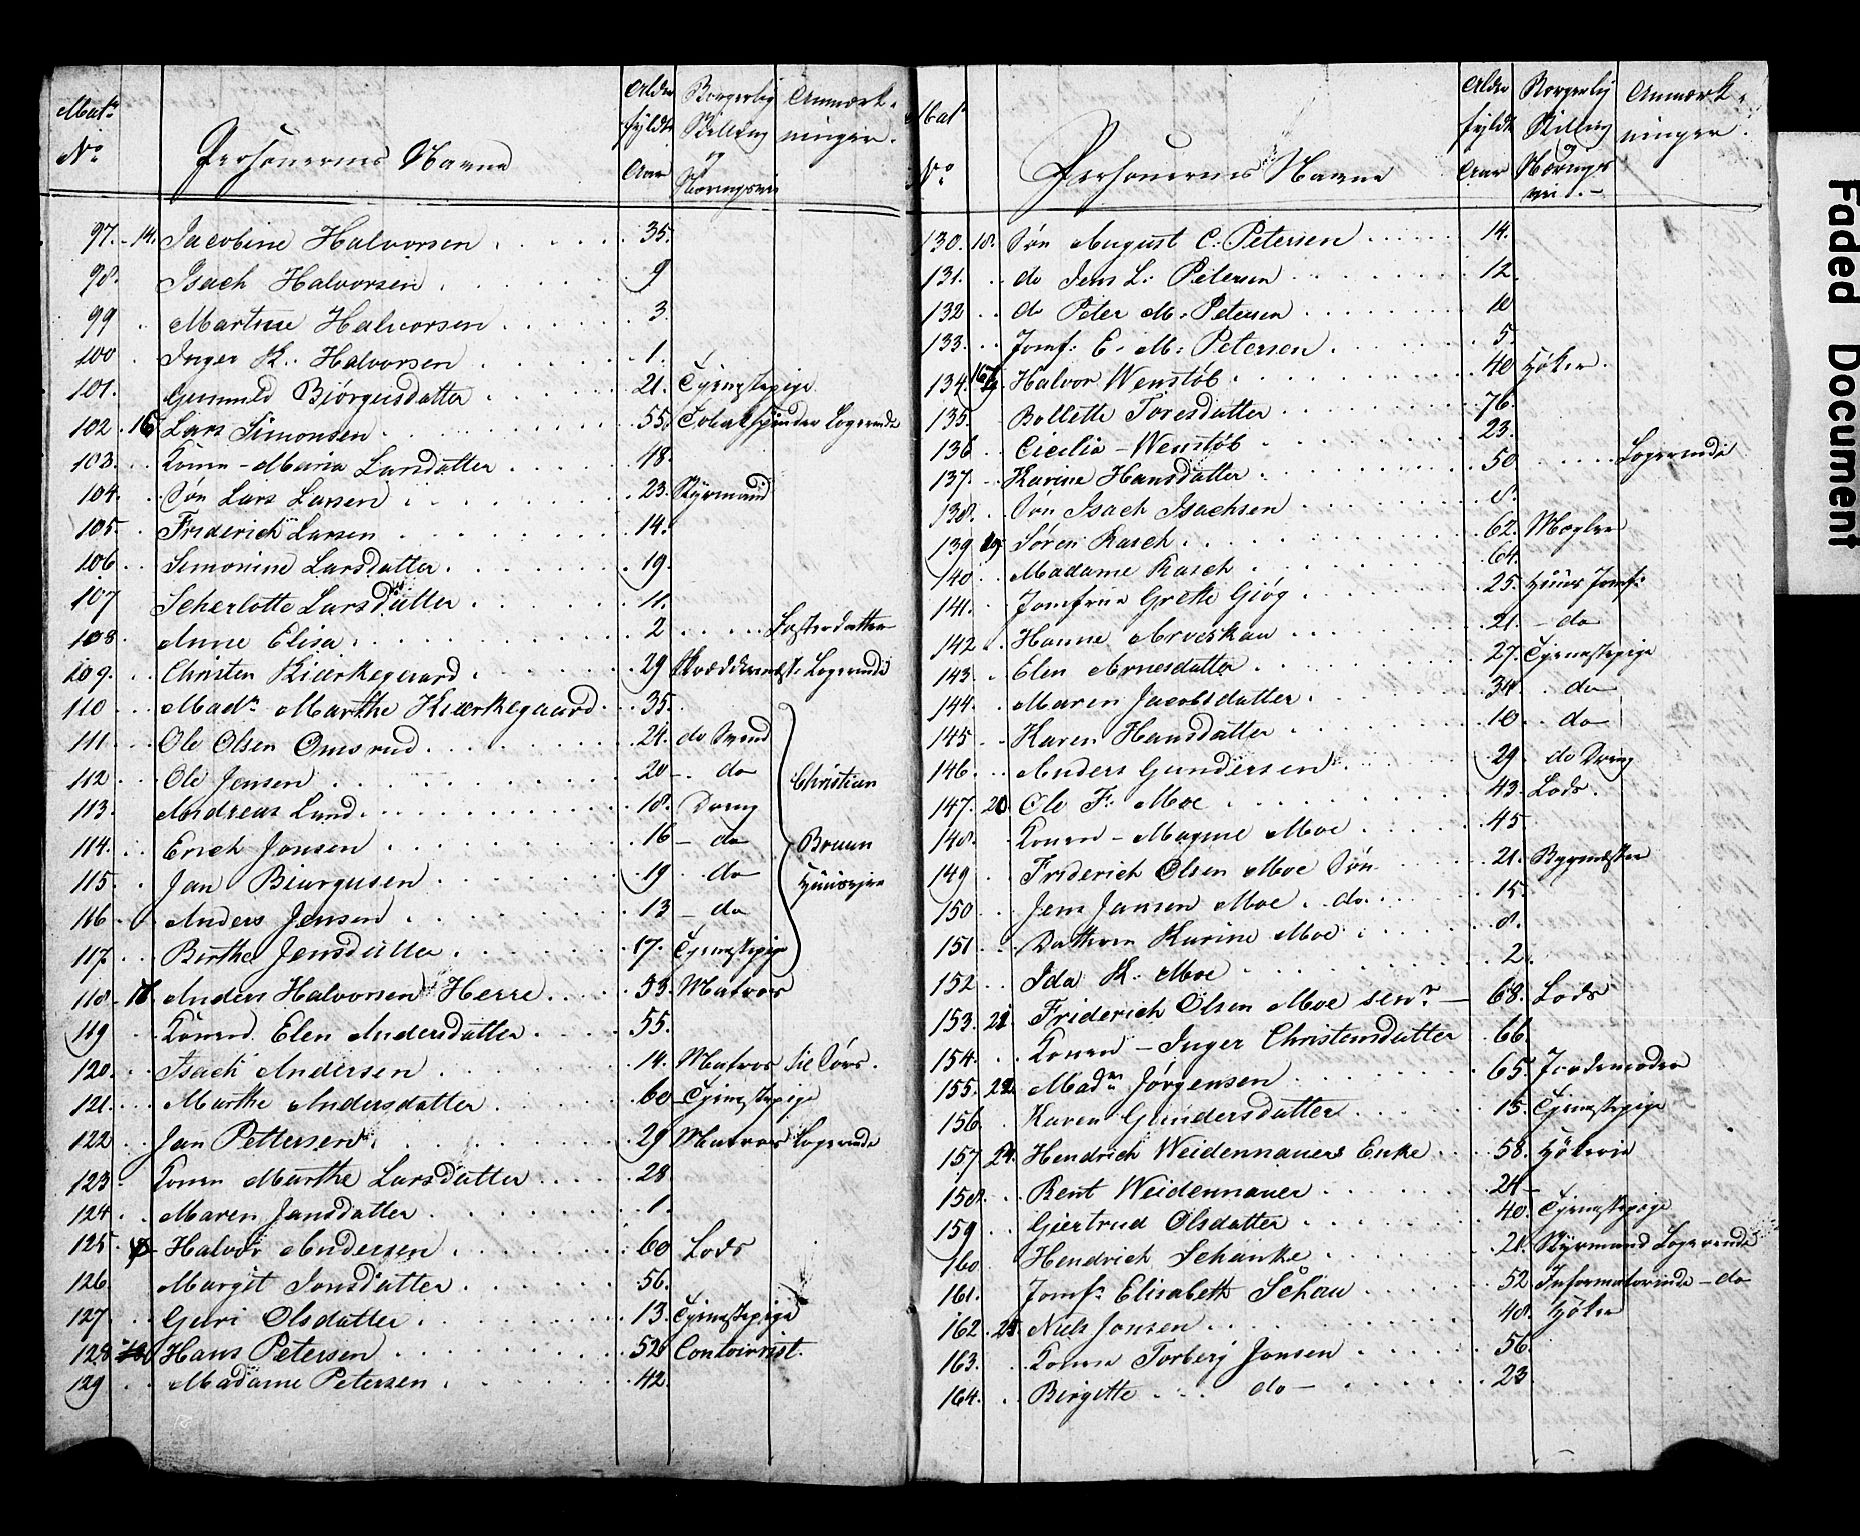 Matr No Personernes Navne Alder fyldte Aar Borgerlig Stilling og Næringsvei Anmærkninger.
97. 14. Jacobine Halvorsen 35.
98. Isach Halvorsen 9
99 Martine Halvorsen 3.
100 Inger K. Halvorsen 1.
101. Gunnuld Biörgusdatter 21. Tjenestepige
102. 15 Lars Simonsen 55. Tobakspinder Logerende
103. Konen - Maria Larsdatter 48.
104. Søn Lars Larsen 23. Styrmand
105. Friderich Larsen 14.
106 Simonine Larsdatter 19.
107 Scherlotte Larsdatter 11.
108 Anne Elisa 2 Fosterdatter
109. Christen Kierkegaard 29 Skræddermest. Logerende
110 Madm Marthe Kierkegaard 35.
111 Ole Olsen Omsrud 24. do Svend
112 Ole Jensen 20 - do Christian
113. Andreas Lund 18. Dreng
114. Erich Jonsen 16 - do Bruun
115. Jan Biurgusen 19 do Huusejer
116 Anders Jensen 13 - do
117. Birthe Jensdatter 17. Tjenestepige
118 Anders Halvorsen Herre 53. Matros
119 Konen Elen Andersdatter 55.
120. Isach Andersen 14. Matros til Søes.
121. Marthe Andersdatter 60 Tjenestepige
122 Jan Pettersen 29 Matros Logerende
123 Konen Marthe Larsdatter 28
124 Maren Jansdatter 1.
125 Halvor Andersen 60 Lods
126. Margit Jonsdatter 56.
127. Guri Olsdatter 13. Tjenestepige
128 Hans Petersen 52 Contoirist.
129 Madame Petersen 42.
Matr No Personernes Navne Alder fyldte Aar Borgerlig Stilling og Nærings vei. Anmærkninger.
130. 18. Søn August C. Petersen 14.
131. do Jens L. Petersen 12.
132 do Peter M. Petersen 10
133. Jomf: E. M: Petersen 5.
134. Halvor Wenstöb 40 Høker.
135. Bollette Toresdatter 76.
136 Cicilia Wenstöb 23.
137. Karine Hansdatter 50 Logerende
138. Søn Isach Isachsen 8.
139 19 Søren Rasch 62. Mægler
140 Madame Rasch 64.
141. Jomfrue Grethe Giög 25. Huus Jomf:
142 Hanne Arveskau 21. - do
143. Elen Arnesdatter 27. Tjenestepige
144. Maren Jacobsdatter 34 do
145 Karen Hansdatter 10 do
146. Anders Gundersen 29 do Dreng
147. 20. Ole F. Moe 43. Lods.
148. Konen - Magnne Moe 45
149 Friderich Olsen Moe Søn 21. Bygmester
150 Jens Jansen Moe do 15.
151 Datteren Karine Moe 8.
152 Ida K. Moe 2.
153. 21. Friderich Olsen Moe senr 68. Lods
154. Konen - Inger Christensdatter 66.
155. 22. Madm Jørgensen 65. Jordemoder
156 Karen Gundersdatter 15. Tjenestepige
157 24. Hendrich Weidennauers Enke 58. Hökerie
158. Bent Weidennauer 24
159. Giertrud Olsdatter 40. Tjenestepige
160 Hendrich Schanke 21. Styrmand Logerende
161. Jomfr Elisabeth Schau 52. Informatorinde - do
162. 25 Niels Jonsen 48. Höker
163. Konen Torberj Jonsen 56.
164. Birgitte do 23
Faded Document